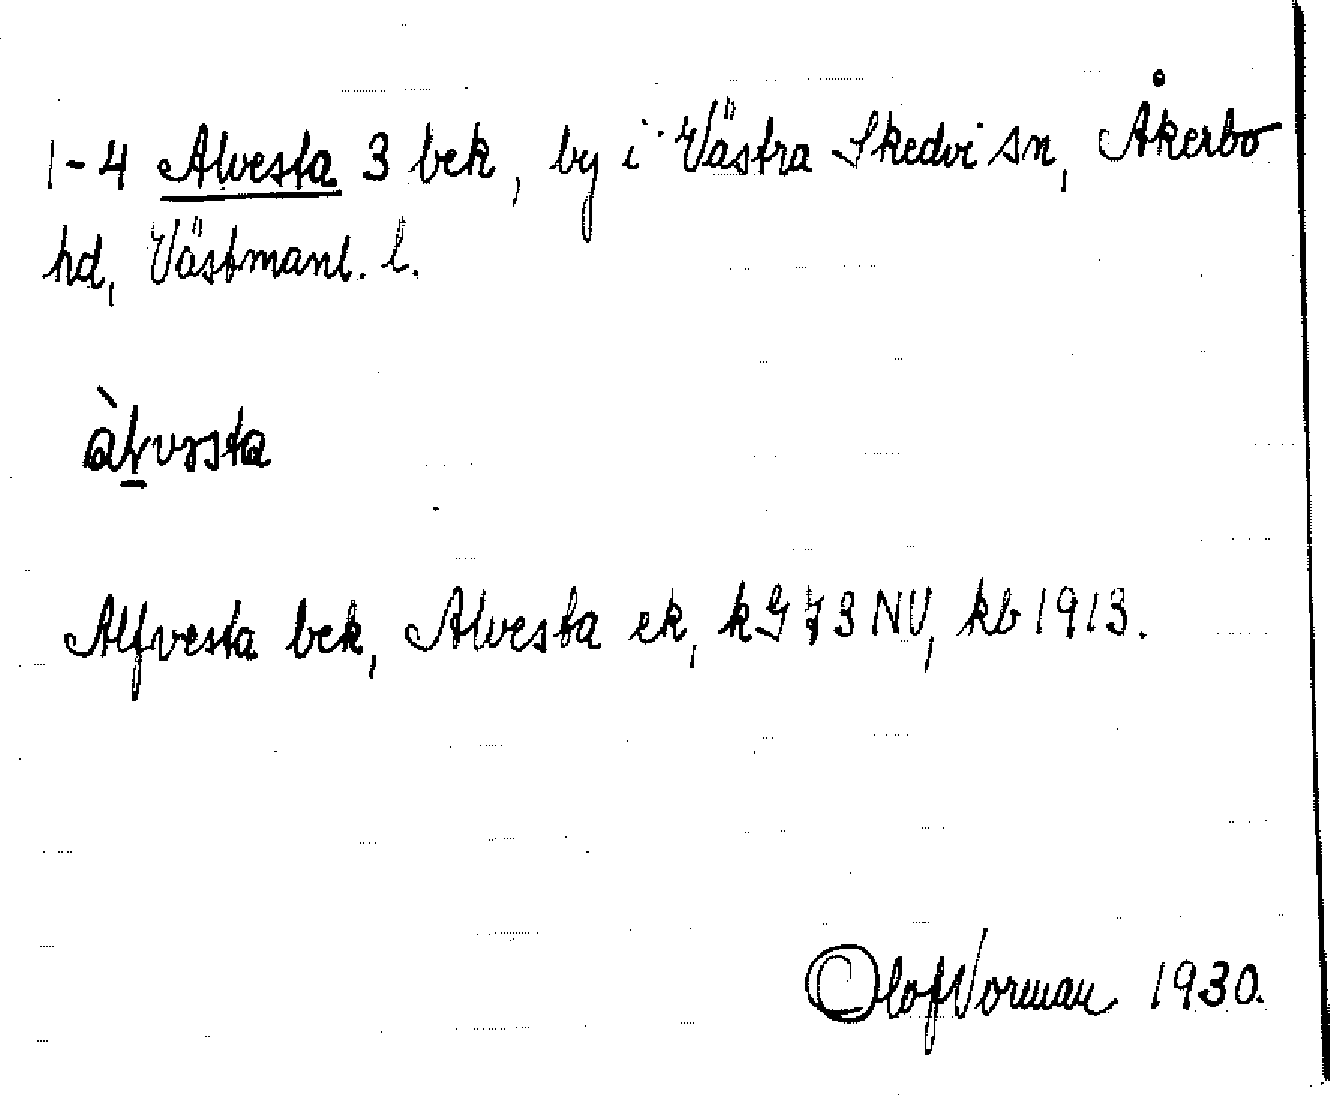 1-4 Alvesta 3 bek, by i Västra Skedvi sn, Åkerbo
hd, Västmanl. l.
Alfvesta bek, Alvesta ek, kG 73 NV, kb 1913.
Olof Norman 1930.